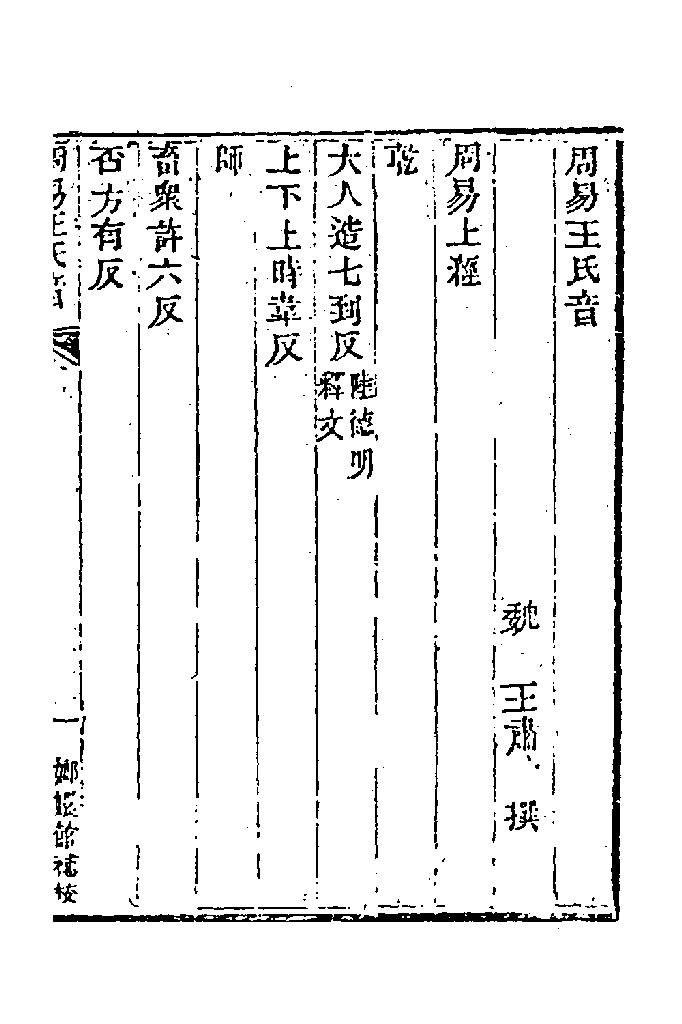 周易王氏音
魏　王肅　撰
周易上經
乾
大人造七到反陸德明釋文
上下上時掌反
師
畜衆許六反
否方有反
周易王氏音
一
嫏嬛館補校